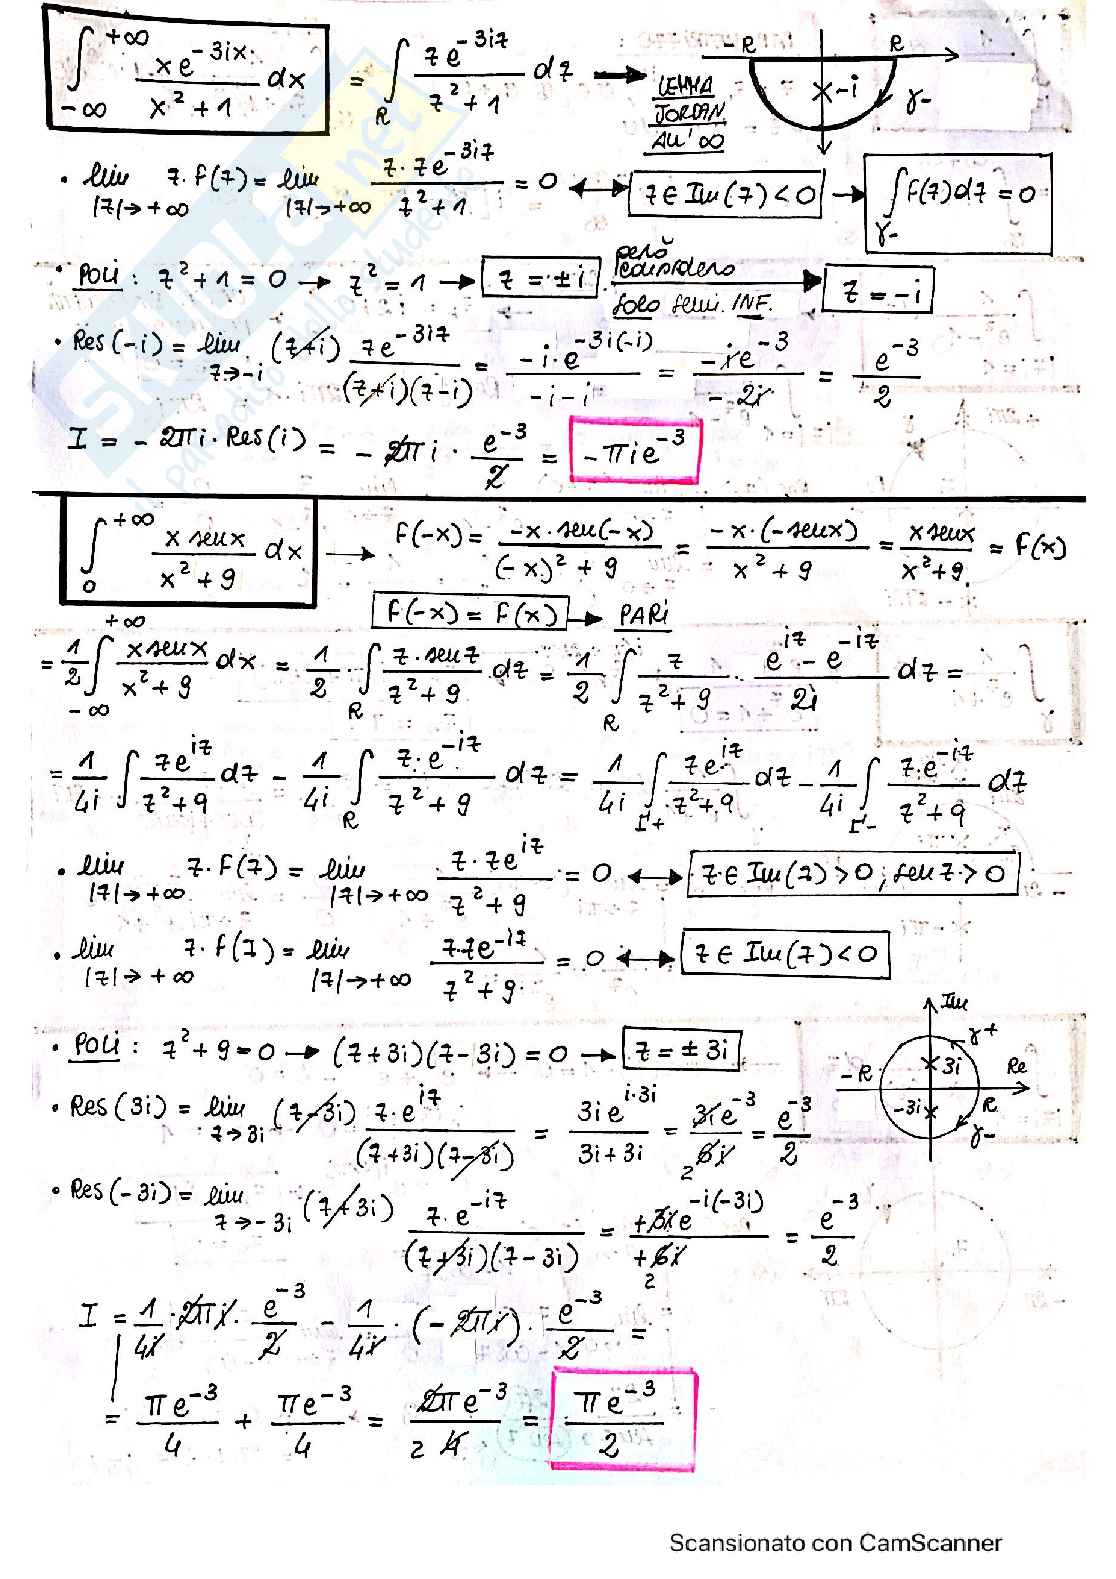 ∫_{-∞}^{+∞} xe^{-3ix}/(x²+1) dx = ∫_R ze^{-3iz}/(z²+1) dz → LEMMA JORDAN ALL'∞
-R R -i γ-
• lim_{|z|→+∞} z·f(z) = lim_{|z|→+∞} z·ze^{-3iz}/(z²+1) = 0 ↔ z∈Im(z)<0 → ∫_{γ-} f(z)dz = 0
• POLI: z²+1=0 → z²=1 → z=±i però considero solo semi. INF. → z=-i
• Res(-i) = lim_{z→-i} (z+i) ze^{-3iz}/((z+i)(z-i)) = -i·e^{-3i(-i)}/(-i-i) = -ie^{-3}/(-2i) = e^{-3}/2
I = -2πi·Res(i) = -2πi · e^{-3}/2 = -πie^{-3}
∫_0^{+∞} x senx/(x²+9) dx → f(-x) = -x·sen(-x)/((-x)²+9) = -x·(-senx)/(x²+9) = x senx/(x²+9) = f(x)
f(-x) = f(x) → PARI
= 1/2 ∫_{-∞}^{+∞} x senx/(x²+9) dx = 1/2 ∫_R z·senz/(z²+9) dz = 1/2 ∫_R z/(z²+9) · (e^{iz} - e^{-iz})/2i dz =
= 1/4i ∫ ze^{iz}/(z²+9) dz - 1/4i ∫_R z·e^{-iz}/(z²+9) dz = 1/4i ∫_{Γ+} ze^{iz}/(z²+9) dz - 1/4i ∫_{Γ-} z·e^{-iz}/(z²+9) dz
• lim_{|z|→+∞} z·f(z) = lim_{|z|→+∞} z·ze^{iz}/(z²+9) = 0 ↔ z∈Im(z)>0; senz>0
• lim_{|z|→+∞} z·f(z) = lim_{|z|→+∞} z·ze^{-iz}/(z²+9) = 0 ↔ z∈Im(z)<0
• POLI: z²+9=0 → (z+3i)(z-3i)=0 → z=±3i
Im γ+ 3i -R Re R -3i γ-
• Res(3i) = lim_{z→3i} (z-3i) z·e^{iz}/((z+3i)(z-3i)) = 3ie^{i·3i}/(3i+3i) = 3ie^{-3}/6i = e^{-3}/2
• Res(-3i) = lim_{z→-3i} (z+3i) z·e^{-iz}/((z+3i)(z-3i)) = +3ie^{-i(-3i)}/+6i = e^{-3}/2
I = 1/4i · 2πi · e^{-3}/2 - 1/4i · (-2πi) · e^{-3}/2 =
= πe^{-3}/4 + πe^{-3}/4 = 2πe^{-3}/4 = πe^{-3}/2
Scansionato con CamScanner